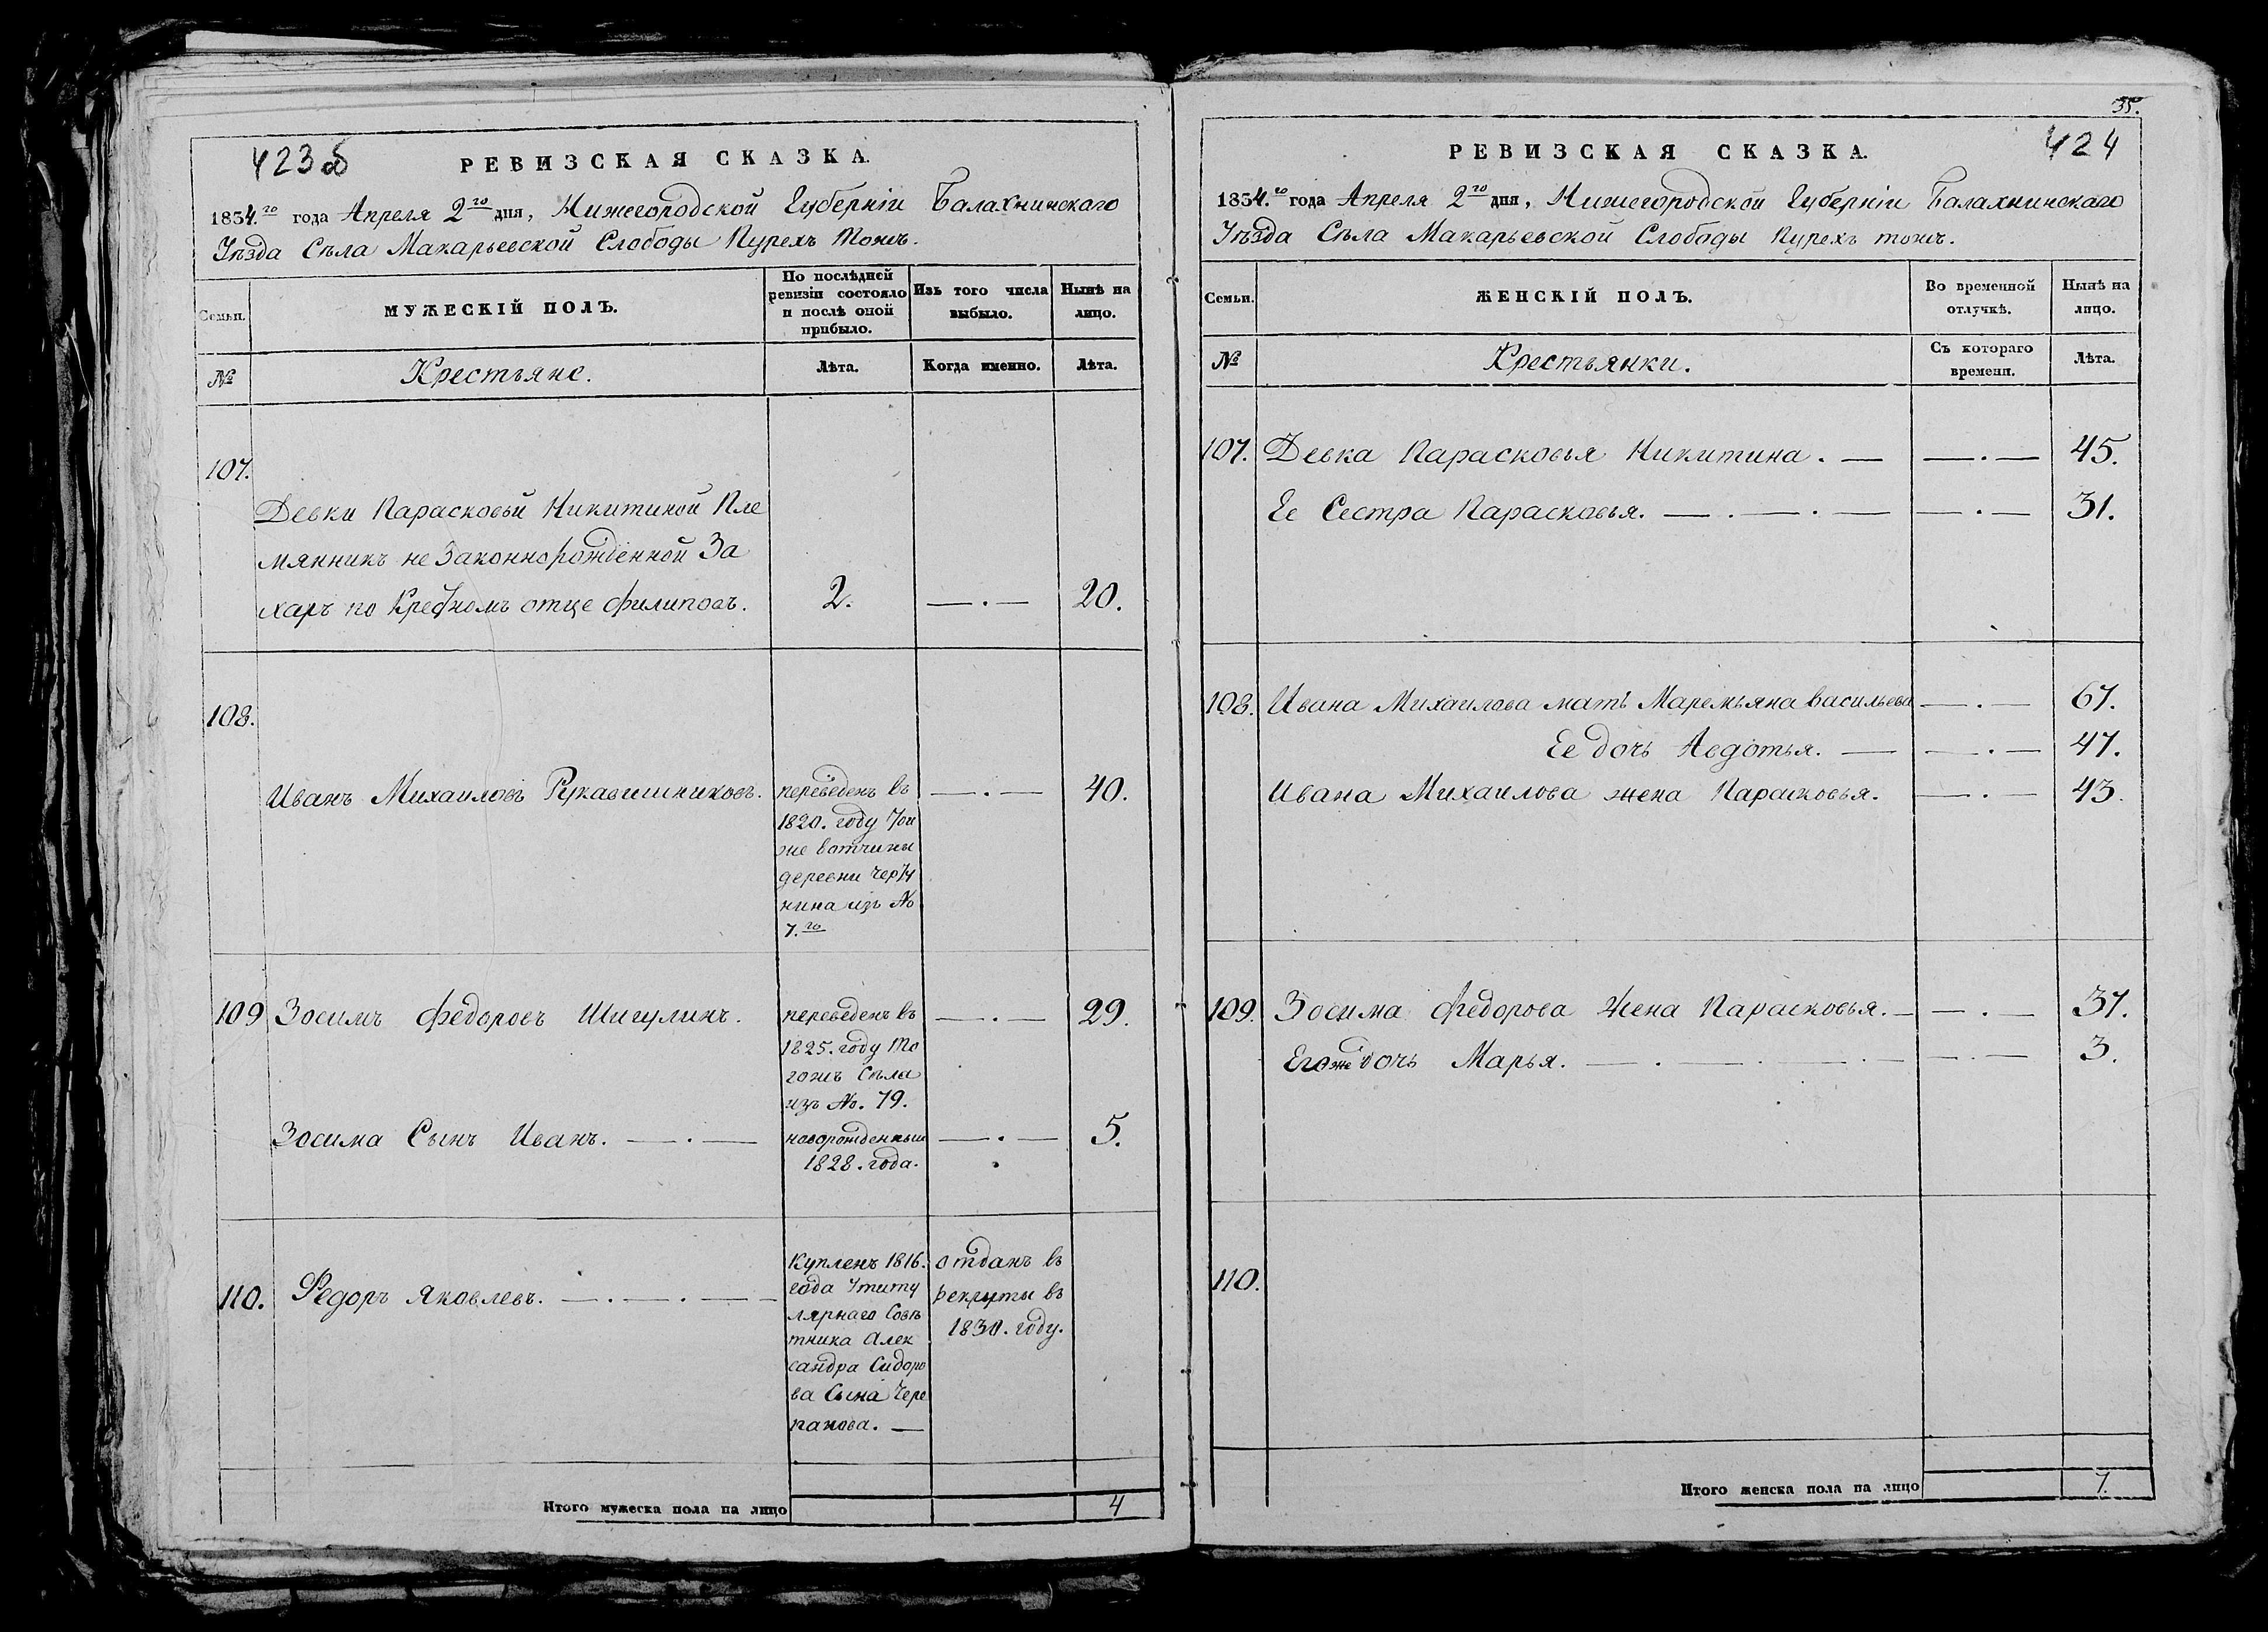 423об
РЕВИЗСКАЯ СКАЗКА.
1834.го года Апреля 2го дня, Нижегородской Губерніи Балахнинскаго
Уѣзда Сѣла Макарьевской Слободы Пурехъ тожъ.
Семьи.
МУЖЕСКІЙ ПОЛЪ.
По послѣдней
ревизіи состояло
и послѣ оной
прибыло.
Изъ того числа
выбыло.
Нынѣ на
лицо.
№
Крестьяне.
Лѣта.
Когда именно.
Лѣта.
107.
Девки Парасковьи Никитиной Пле
мянникъ не Законнорожденной За
харъ по Крестномъ отце Филиповъ. 2. —.— 20.
108.
Иванъ Михаиловъ Рукавишниковъ. переведенъ въ —.— 40.
1820. году Той
же вотчины
деревни
нина изъ №
7.го
109 Зосимъ Федоровъ Шигулинъ. переведенъ въ —.— 29.
1825. году То
гожъ Сѣла
изъ №. 79.
Зосима Сынъ Иванъ. —.— новорожденный —.— 5.
1828. года.
110. Федоръ Яковлевъ. —.—.—
Купленъ 1816.
года Утиту
лярнаго Совѣ
тника Алек
сандра Сидоро
ва Сына Чере
панова. —
отданъ въ
рекруты въ
1830. году.
Итого мужеска пола на лицо 4
35.
424
РЕВИЗСКАЯ СКАЗКА.
1834.го года Апреля 2го дня, Нижегородской Губерніи Балахнинскаго
Уѣзда Сѣла Макарьевской Слободы Пурехъ тожъ.
Семьи.
ЖЕНСКІЙ ПОЛЪ.
Во временной
отлучкѣ.
Нынѣ на
лицо.
№
Крестьянки.
Съ котораго
времени.
Лѣта.
107. Девка Парасковья Никитина. — —.— 45.
Ее Сестра Парасковья. —.—.— —.— 31.
108. Ивана Михаилова мать Маремьяна васильева —.— 67.
Ее дочь Авдотья. — —.— 47.
Ивана Михаилова жена Парасковья. —.— 43.
109. Зосима Федорова Жена Парасковья. — —.— 37.
Егоже дочь Марья. —.—.— —.— 3.
110.
Итого женска пола на лицо 7.